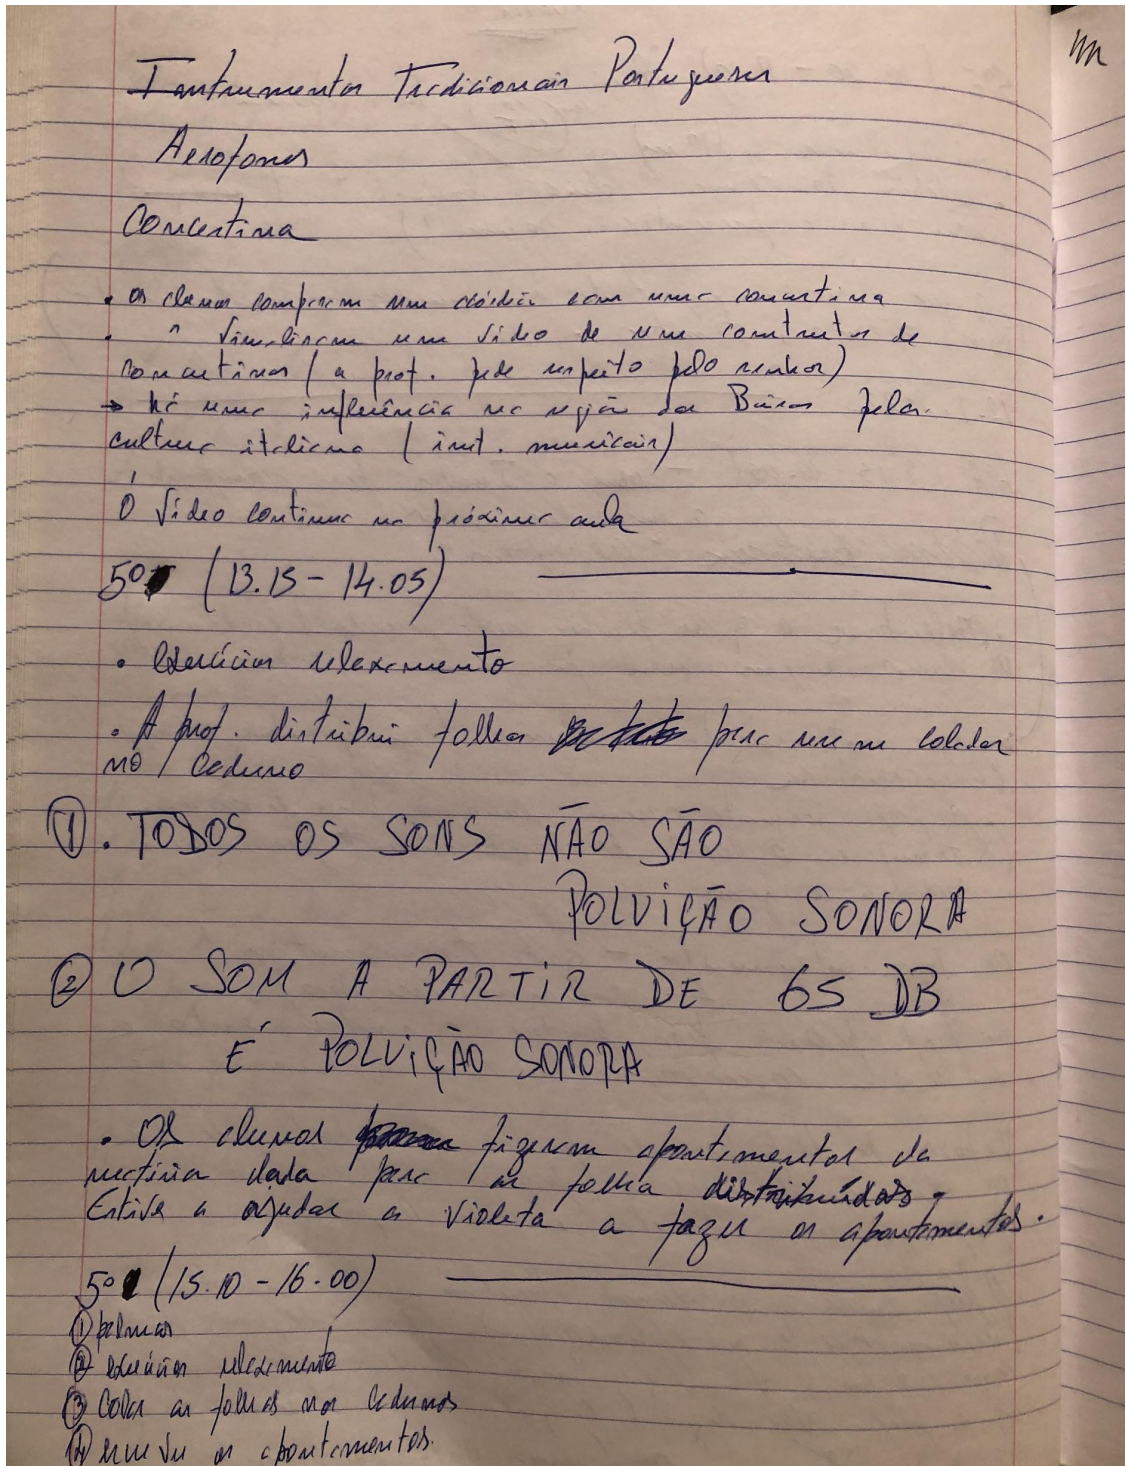 Instrumentos Tradicionais Portugueses
Aerofones
Concertina
• os alunos comparam um acórdeão com uma concertina
• " visualizam um vídeo de um construtor de
concertinas (a prof. pede respeito pelo senhor)
→ há uma influência na região das Beiras pela
cultura italiana (inst. musicais)
O vídeo continua na próxima aula
5º (13.15 - 14.05)
• exercícios relaxamento
• A prof. distribui folhas para serem coladas
no caderno
① . TODOS OS SONS NÃO SÃO
POLUIÇÃO SONORA
② O SOM A PARTIR DE 65 DB
É POLUIÇÃO SONORA
• Os alunos fizeram apontamentos da
matéria dada para as folha distribuídas.
Estive a ajudar a Violeta a fazer os apontamentos.
5º (15.10 - 16.00)
① palmas
② exercícios relaxamento
③ Colar as folhas nos cadernos
④ escrever os apontamentos.